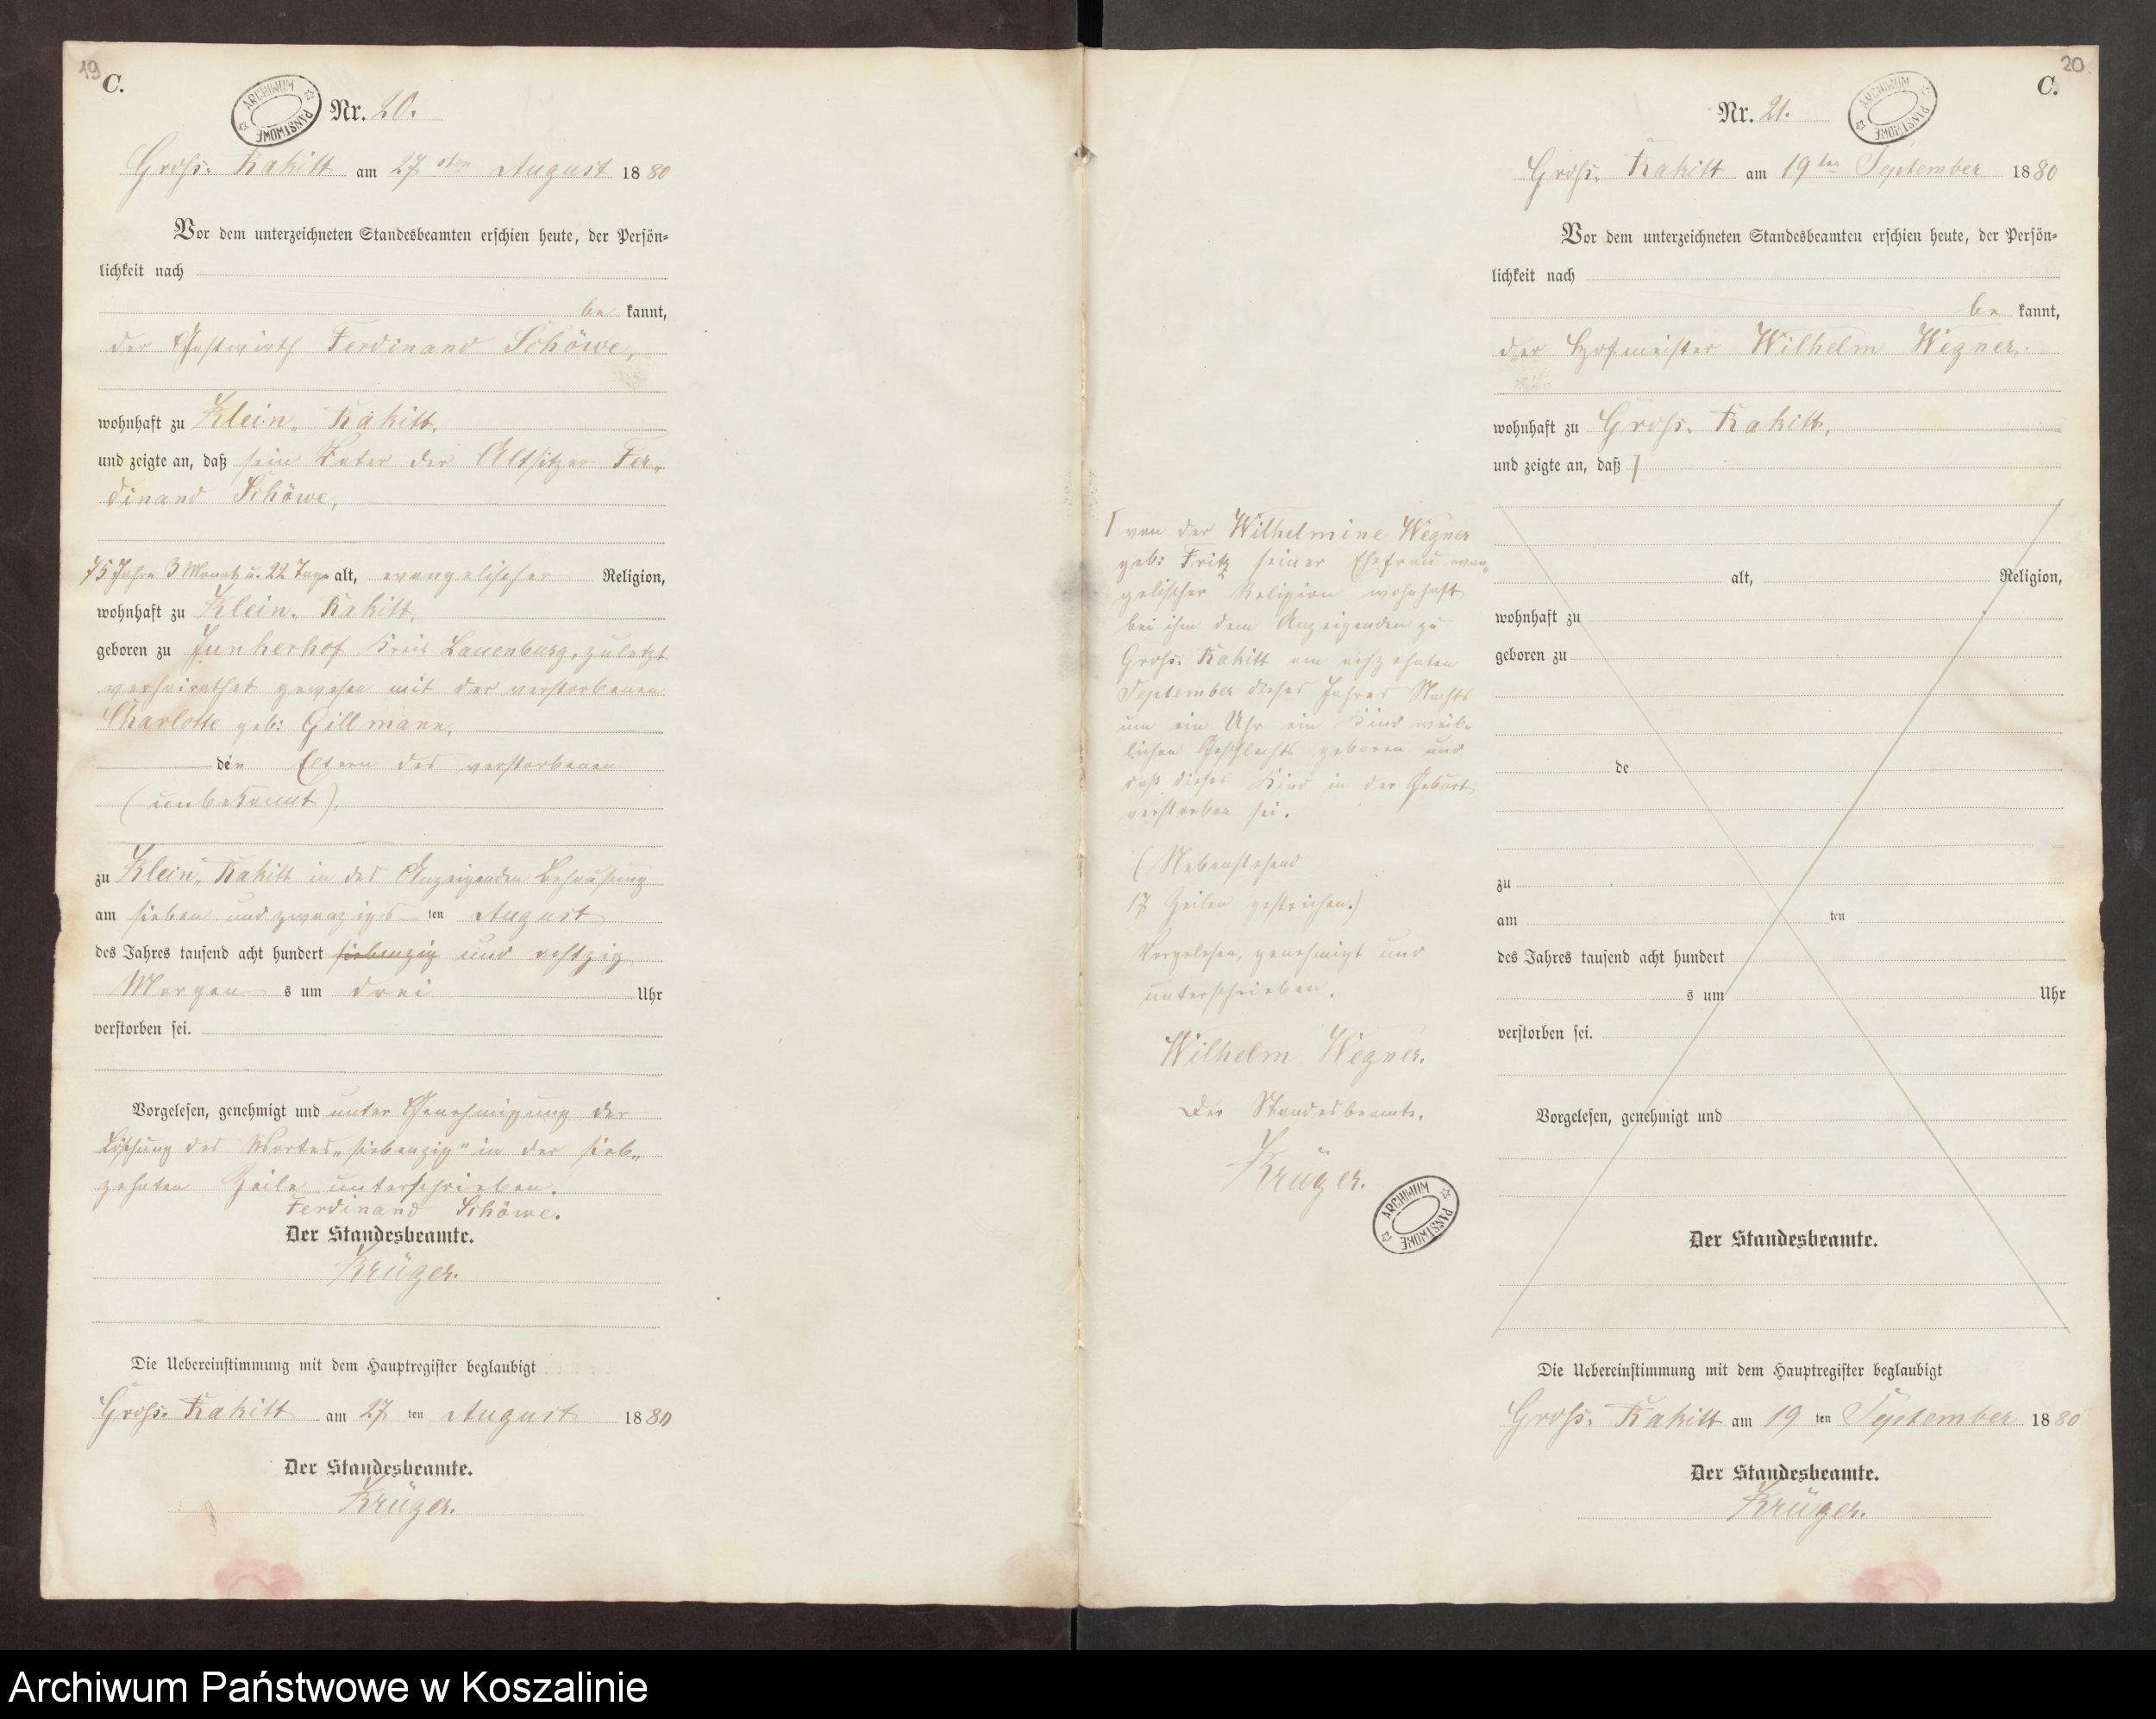 19
C.
ARCHIWUM PAŃSTWOWE
Nr. 20.
Groß-Rakitt am 27sten August 1880
Vor dem unterzeichneten Standesbeamten erschien heute, der Persön-
lichkeit nach
be kannt,
der Gastwirth Ferdinand Schöwe,
wohnhaft zu Klein-Rakitt,
und zeigte an, daß sein Vater der Altsitzer Fer-
dinand Schöwe,
75 Jahre 3 Monat u. 22 Tage alt, evangelischer Religion,
wohnhaft zu Klein-Rakitt,
geboren zu Junkerhof Kreis Lauenburg, zuletzt
verheirathet gewesen mit der verstorbenen
Charlotte geb: Gillmann,
die Eltern des verstorbenen
(unbekannt),
zu Klein-Rakitt in des Anzeigenden Behausung
am sieben und zwanzigs ten August
des Jahres tausend acht hundert siebenzig und achtzig
Morgen s um drei Uhr
verstorben sei.
Vorgelesen, genehmigt und unter Genehmigung der
Löschung des Wortes „siebenzig" in der sieb-
zehnten Zeile unterschrieben.
Ferdinand Schöwe.
Der Standesbeamte.
Krüger.
Die Uebereinstimmung mit dem Hauptregister beglaubigt
Groß-Rakitt am 27 ten August 1880
Der Standesbeamte.
Krüger.
20.
C.
ARCHIWUM PAŃSTWOWE
Nr. 21.
Groß-Rakitt am 19ten September 1880
Vor dem unterzeichneten Standesbeamten erschien heute, der Persön-
lichkeit nach
be kannt,
der Hofmeister Wilhelm Wegner.
wohnhaft zu Groß-Rakitt,
und zeigte an, daß
von der Wilhelmine Wegner
geb: Fritz seiner Ehefrau evan-
gelischer Religion wohnhaft
bei ihm dem Anzeigenden zu
Groß-Rakitt am achtzehnten
September dieses Jahres Nachts
um ein Uhr ein Kind weib-
lichen Geschlechts geboren und
daß dieses Kind in der Geburt
verstorben sei.
(Nebenstehend
17 Zeilen gestrichen.)
Vorgelesen, genehmigt und
unterschrieben.
Wilhelm Wegner.
Der Standesbeamte.
Krüger.
ARCHIWUM PAŃSTWOWE
alt, Religion,
wohnhaft zu
geboren zu
de
zu
am ten
des Jahres tausend acht hundert
s um Uhr
verstorben sei.
Vorgelesen, genehmigt und
Der Standesbeamte.
Die Uebereinstimmung mit dem Hauptregister beglaubigt
Groß-Rakitt am 19 ten September 1880
Der Standesbeamte.
Krüger.
Archiwum Państwowe w Koszalinie